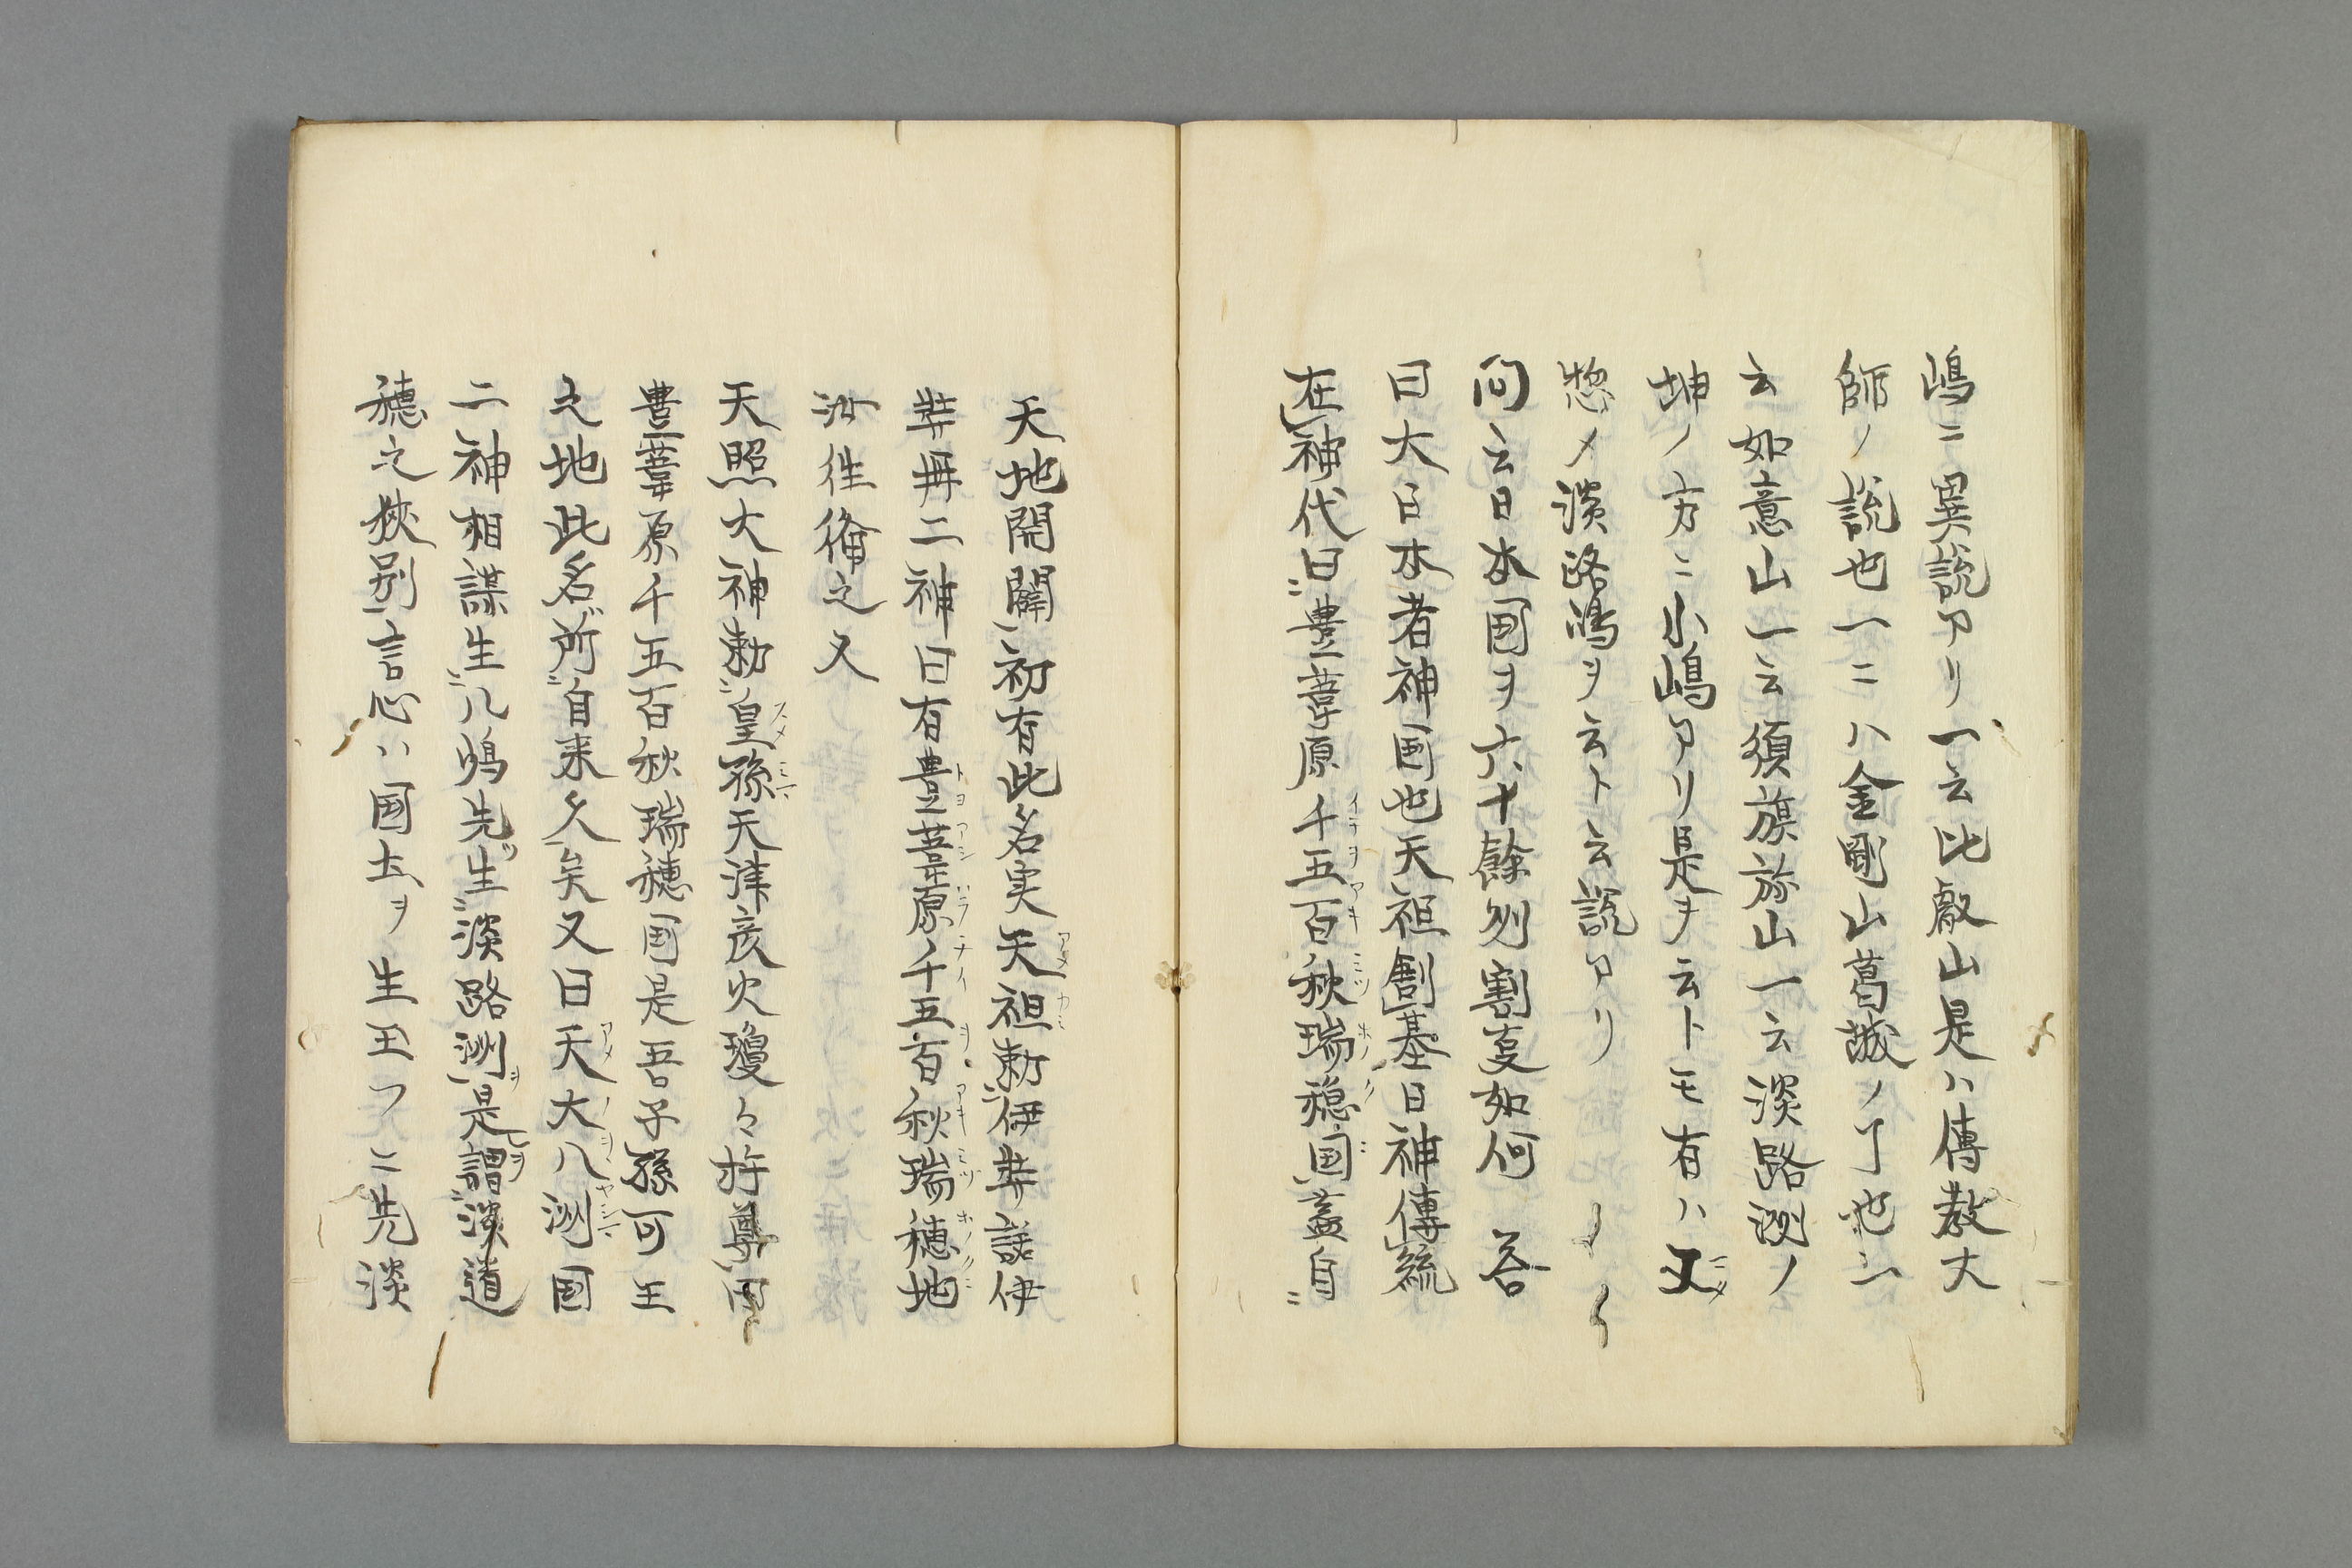 嶋ニ異説アリ一云比叡山是ハ傳教大
師ノ説也一ニハ金剛山葛城ノ了也一ニ
云如意山一云須弥山一云淡路洲ノ
坤ノ方ニ小嶋アリ是ヲ云トモ有ハ又
惣ノ淡路嶋ヲ云ト云説アリ
問云日本國ヲ六十餘州割事如何 答
曰大日本者神国也天祖創基日神傳統
在神代曰豊葦原千五百秋瑞穂国蓋自
天地開闢初有此名実天祖勅伊弉諾伊
弉冉二神曰有豊葦原千五百秋瑞穂地
汝往脩之又
天照大神勅皇孫天津彦火瓊々杵尊曰
豊葦原千五百秋瑞穂国是吾子孫可王
之地此名所自来久矣又曰天大八洲國
二神相謀生八嶋先生淡路洲是謂淡道
穂之狭別言心ハ國土ヲ生玉フニ先淡